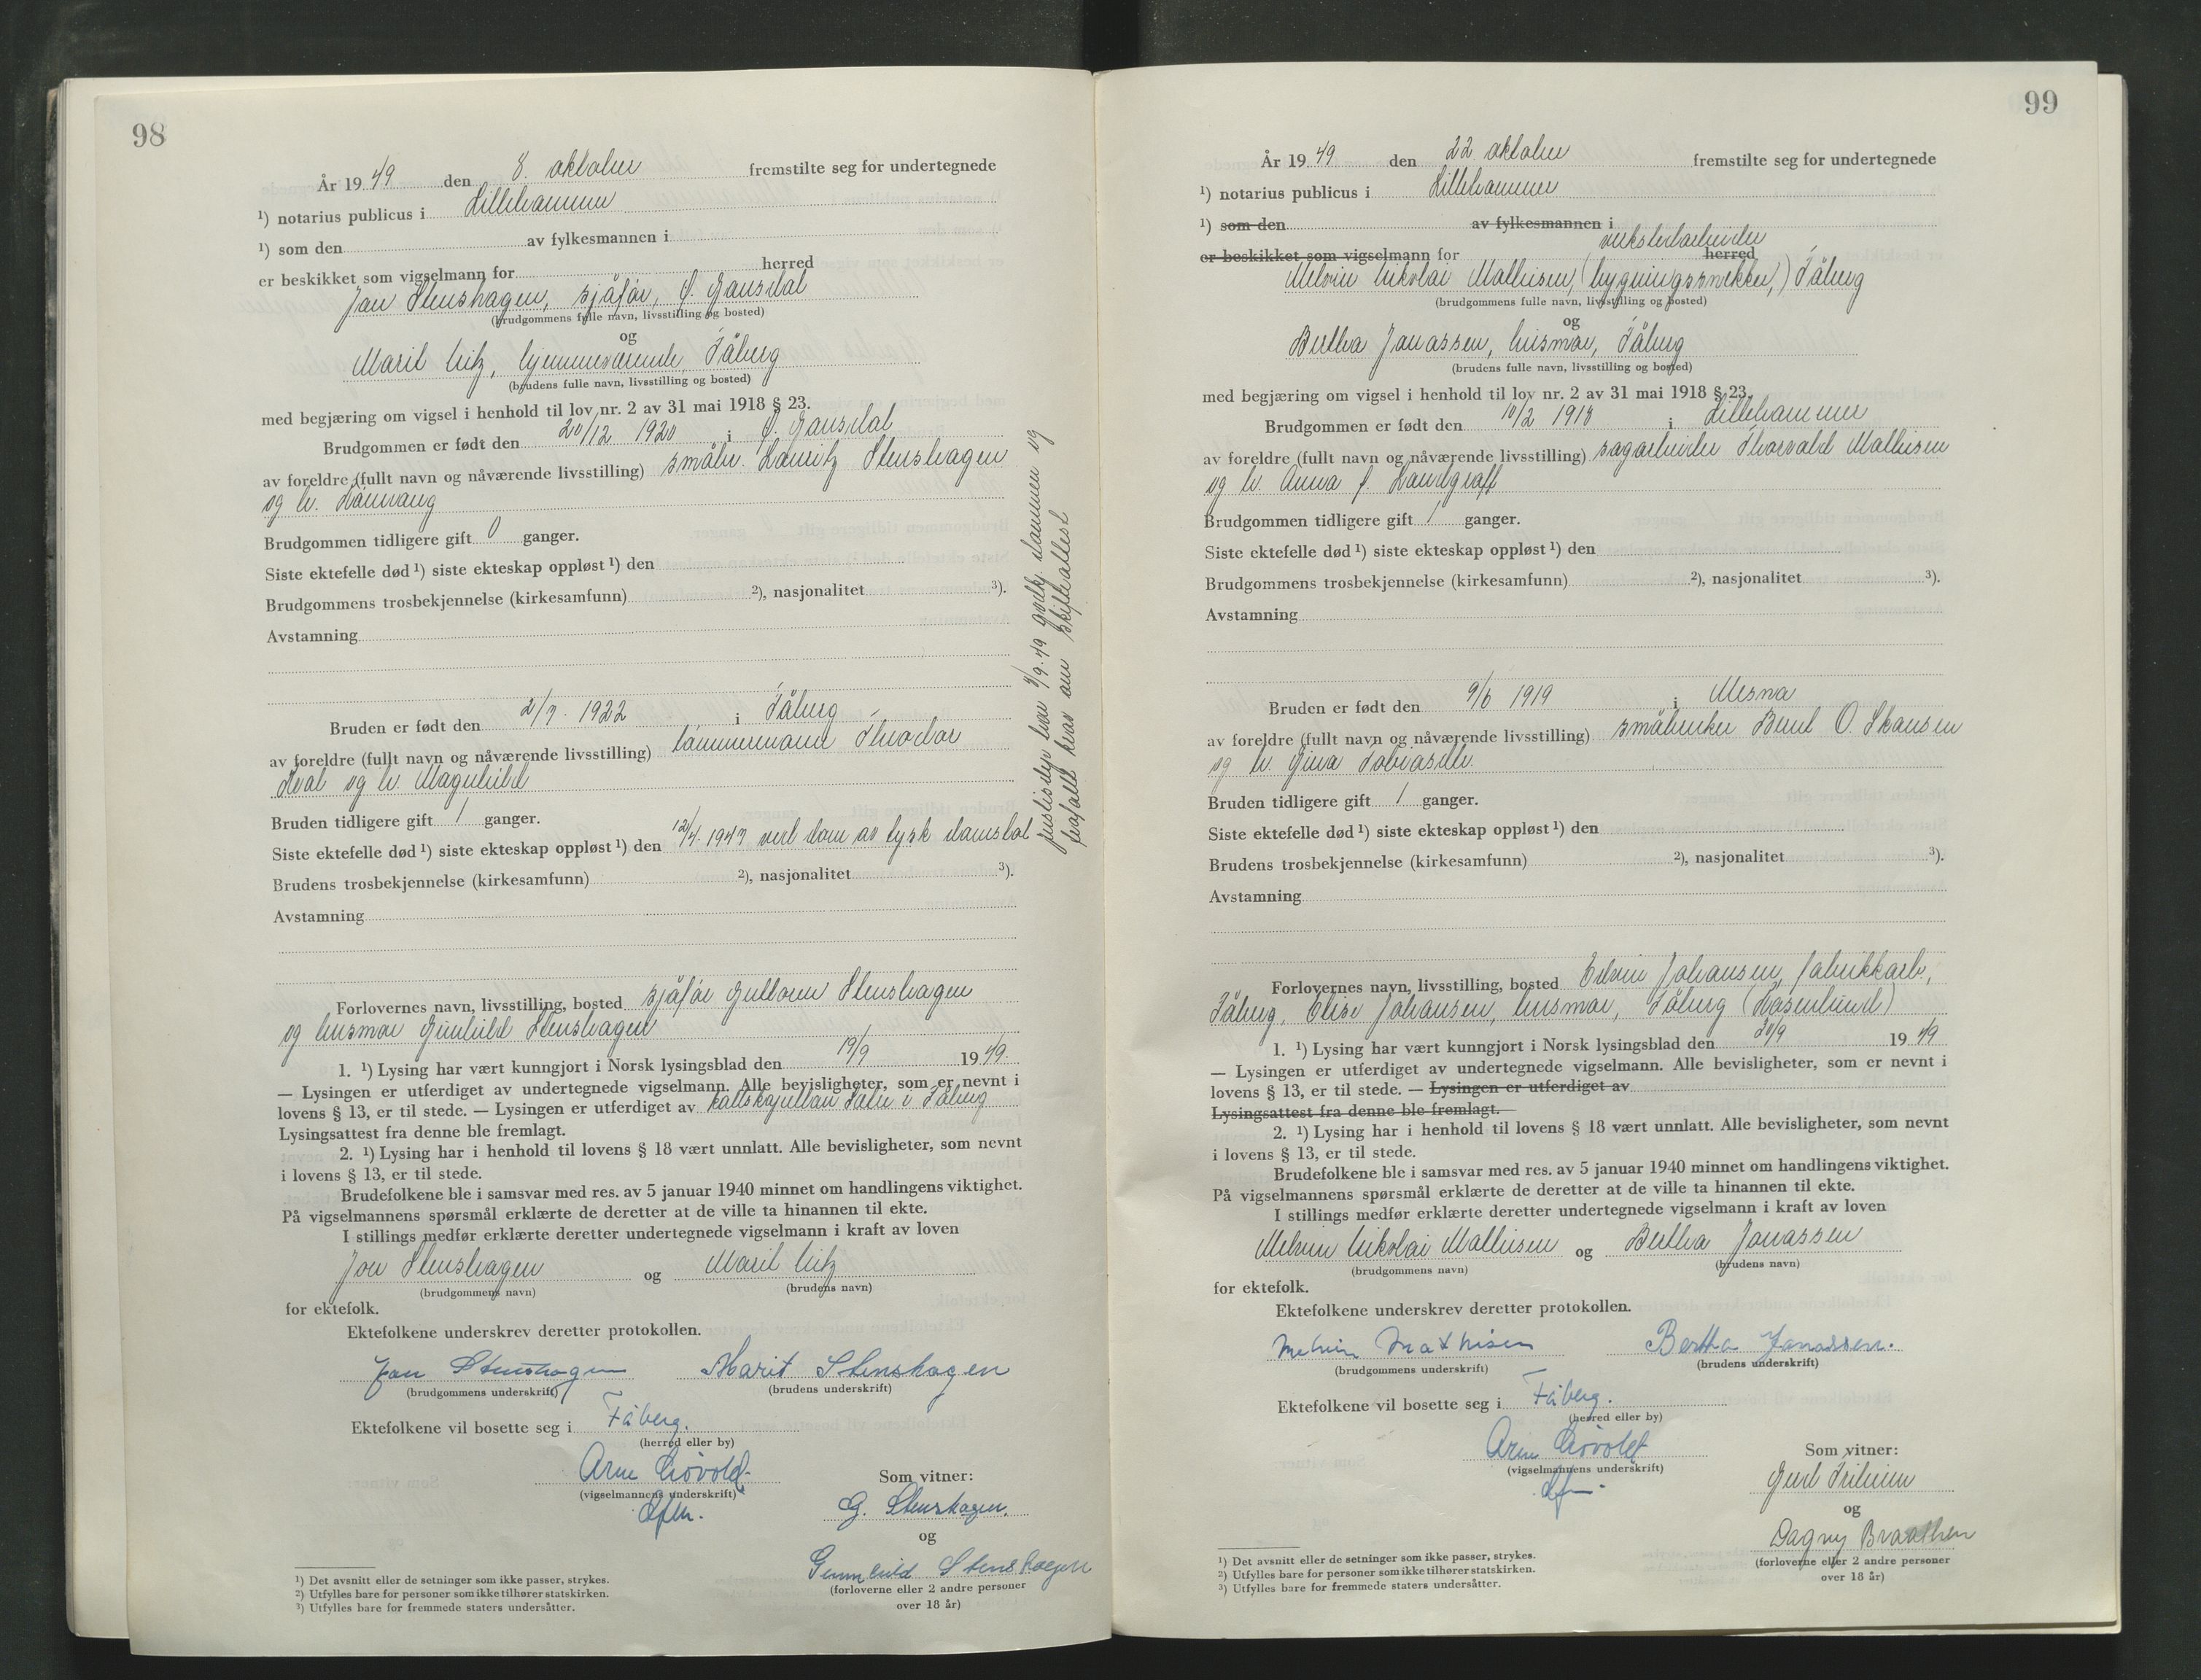 98
År 1949 den 8. oktober fremstilte seg for undertegnede
¹) notarius publicus i Lillehammer
¹) som den av fylkesmannen i
er beskikket som vigselmann for herred
Jon Stenshagen, sjåfør, Ø. Gausdal
(brudgommens fulle navn, livsstilling og bosted)
og
Marit Nitz, hjemmeværende, Fåberg
(brudens fulle navn, livsstilling og bosted)
med begjæring om vigsel i henhold til lov nr. 2 av 31 mai 1918 § 23.
Brudgommen er født den 20/12 1920 i Ø. Gausdal
av foreldre (fullt navn og nåværende livsstilling) småbr. Lauritz Stenshagen
og h.
Brudgommen tidligere gift 0 ganger.
Siste ektefelle død ¹) siste ekteskap oppløst ¹) den
Brudgommens trosbekjennelse (kirkesamfunn) ²), nasjonalitet ³).
Avstamning
Bruden er født den 2/7. 1922 i Fåberg
av foreldre (fullt navn og nåværende livsstilling) tømmermand Theodor
og h. Magnhild
Bruden tidligere gift 1 ganger.
Siste ektefelle død ¹) siste ekteskap oppløst ¹) den 12/4. 1947 ved dom av tysk domstol
Brudens trosbekjennelse (kirkesamfunn) ²), nasjonalitet ³).
Avstamning
justisdep har /9.49 godkj. dommen og
frafalt krav om skifteattest
Forlovernes navn, livsstilling, bosted sjåfør Guttorm Stenshagen
og husmor Gunhild Stenshagen
1. ¹) Lysing har vært kunngjort i Norsk lysingsblad den 19/9 1949.
— Lysingen er utferdiget av undertegnede vigselmann. Alle bevisligheter, som er nevnt i
lovens § 13, er til stede. — Lysingen er utferdiget av i Fåberg
Lysingsattest fra denne ble fremlagt.
2. ¹) Lysing har i henhold til lovens § 18 vært unnlatt. Alle bevisligheter, som nevnt
i lovens § 13, er til stede.
Brudefolkene ble i samsvar med res. av 5 januar 1940 minnet om handlingens viktighet.
På vigselmannens spørsmål erklærte de deretter at de ville ta hinannen til ekte.
I stillings medfør erklærte deretter undertegnede vigselmann i kraft av loven
Jon Stenshagen og Marit Nitz
(brudgommens navn) (brudens navn)
for ektefolk.
Ektefolkene underskrev deretter protokollen.
Jon Stenshagen Marit Stenshagen
(brudgommens underskrift) (brudens underskrift)
Ektefolkene vil bosette seg i Fåberg.
(herred eller by)
Arne
(vigselmannens underskrift)
Som vitner:
G. Stenshagen.
og
Gunnhild Stenshagen
(forloverne eller 2 andre personer
over 18 år)
¹) Det avsnitt eller de setninger som ikke passer, strykes.
²) Utfylles bare for personer som ikke tilhører statskirken.
³) Utfylles bare for fremmede staters undersåtter.
99
År 1949 den 22 oktober fremstilte seg for undertegnede
¹) notarius publicus i Lillehammer
¹) som den av fylkesmannen i
verkstedarbeider
er beskikket som vigselmann for herred
Melvin Nikolai Mathisen, (bygningssnekker,) Fåberg
(brudgommens fulle navn, livsstilling og bosted)
og
Bertha Jonassen, husmor, Fåberg
(brudens fulle navn, livsstilling og bosted)
med begjæring om vigsel i henhold til lov nr. 2 av 31 mai 1918 § 23.
Brudgommen er født den 10/2 1918 i Lillehammer
av foreldre (fullt navn og nåværende livsstilling) sagarbeider Thorvald Mathisen
og h. Anna f. Landgraff
Brudgommen tidligere gift 1 ganger.
Siste ektefelle død ¹) siste ekteskap oppløst ¹) den
Brudgommens trosbekjennelse (kirkesamfunn) ²), nasjonalitet ³).
Avstamning
Bruden er født den 9/6 1919 i Mesna
av foreldre (fullt navn og nåværende livsstilling) småbruker Bernt O. Skansen
og h. Gina Tobiasdtr.
Bruden tidligere gift 1 ganger.
Siste ektefelle død ¹) siste ekteskap oppløst ¹) den
Brudens trosbekjennelse (kirkesamfunn) ²), nasjonalitet ³).
Avstamning
Forlovernes navn, livsstilling, bosted Edvin Johansen, fabrikkarb,
Fåberg, Elise Johansen, husmor, Fåberg (Røsenlund)
1. ¹) Lysing har vært kunngjort i Norsk lysingsblad den 30/9 1949
— Lysingen er utferdiget av undertegnede vigselmann. Alle bevisligheter, som er nevnt i
lovens § 13, er til stede. — Lysingen er utferdiget av
Lysingsattest fra denne ble fremlagt.
2. ¹) Lysing har i henhold til lovens § 18 vært unnlatt. Alle bevisligheter, som nevnt
i lovens § 13, er til stede.
Brudefolkene ble i samsvar med res. av 5 januar 1940 minnet om handlingens viktighet.
På vigselmannens spørsmål erklærte de deretter at de ville ta hinannen til ekte.
I stillings medfør erklærte deretter undertegnede vigselmann i kraft av loven
Melvin Nikolai Mathisen og Bertha Jonassen
(brudgommens navn) (brudens navn)
for ektefolk.
Ektefolkene underskrev deretter protokollen.
Melvin Mathisen Bertha Jonassen.
(brudgommens underskrift) (brudens underskrift)
Ektefolkene vil bosette seg i Fåberg.
(herred eller by)
Arne
(vigselmannens underskrift)
Som vitner:
Gerd
og
Dagny Braathen
(forloverne eller 2 andre personer
over 18 år)
¹) Det avsnitt eller de setninger som ikke passer, strykes.
²) Utfylles bare for personer som ikke tilhører statskirken.
³) Utfylles bare for fremmede staters undersåtter.